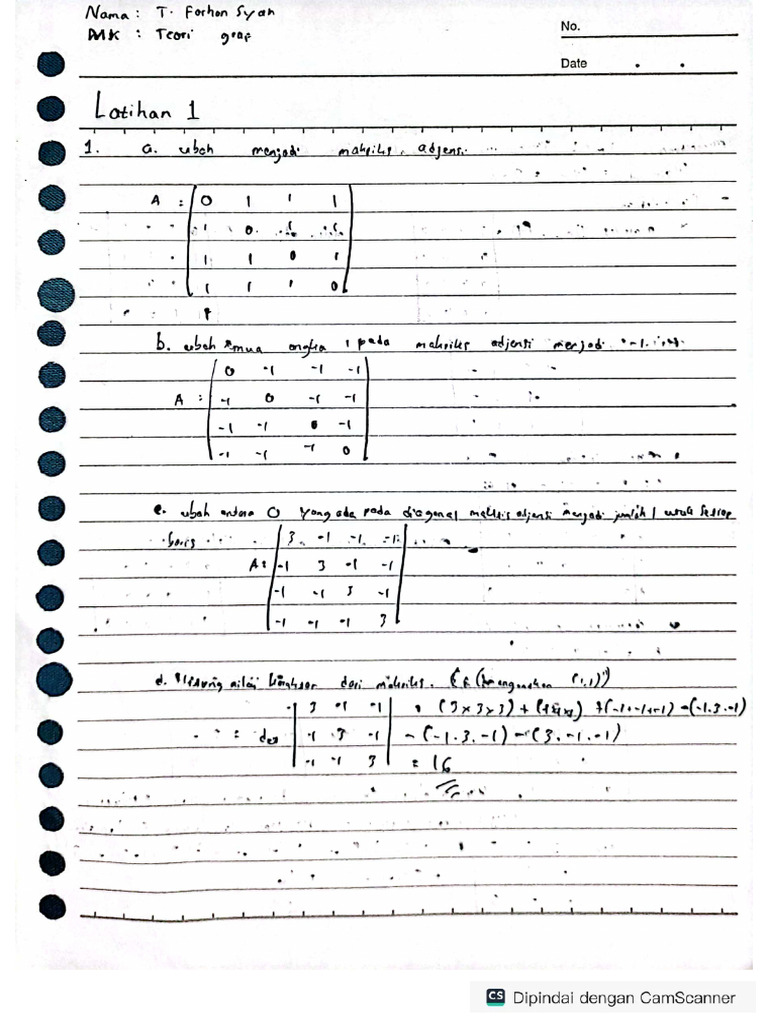 Nama : T. Farhan Syah
MK : Teori graf
No.
Date
Latihan 1
1. a. ubah menjadi matriks adjensi
A = 0 1 1 1
1 0 1 1
1 1 0 1
1 1 1 0
b. ubah semua angka 1 pada matriks adjensi menjadi -1
0 -1 -1 -1
A = -1 0 -1 -1
-1 -1 0 -1
-1 -1 -1 0
c. ubah 0 yang ada pada diagonal matriks adjensi menjadi jumlah 1 untuk setiap
baris
3 -1 -1 -1
A = -1 3 -1 -1
-1 -1 3 -1
-1 -1 -1 3
d. nilai dari matriks. (1,1)
3 -1 -1 = (3x3x3) + (-1x-1x-1) + (-1x-1x-1) - (-1.3.-1)
= det -1 3 -1 - (-1.3.-1) - (3.-1.-1)
-1 -1 3 = 16
CS Dipindai dengan CamScanner